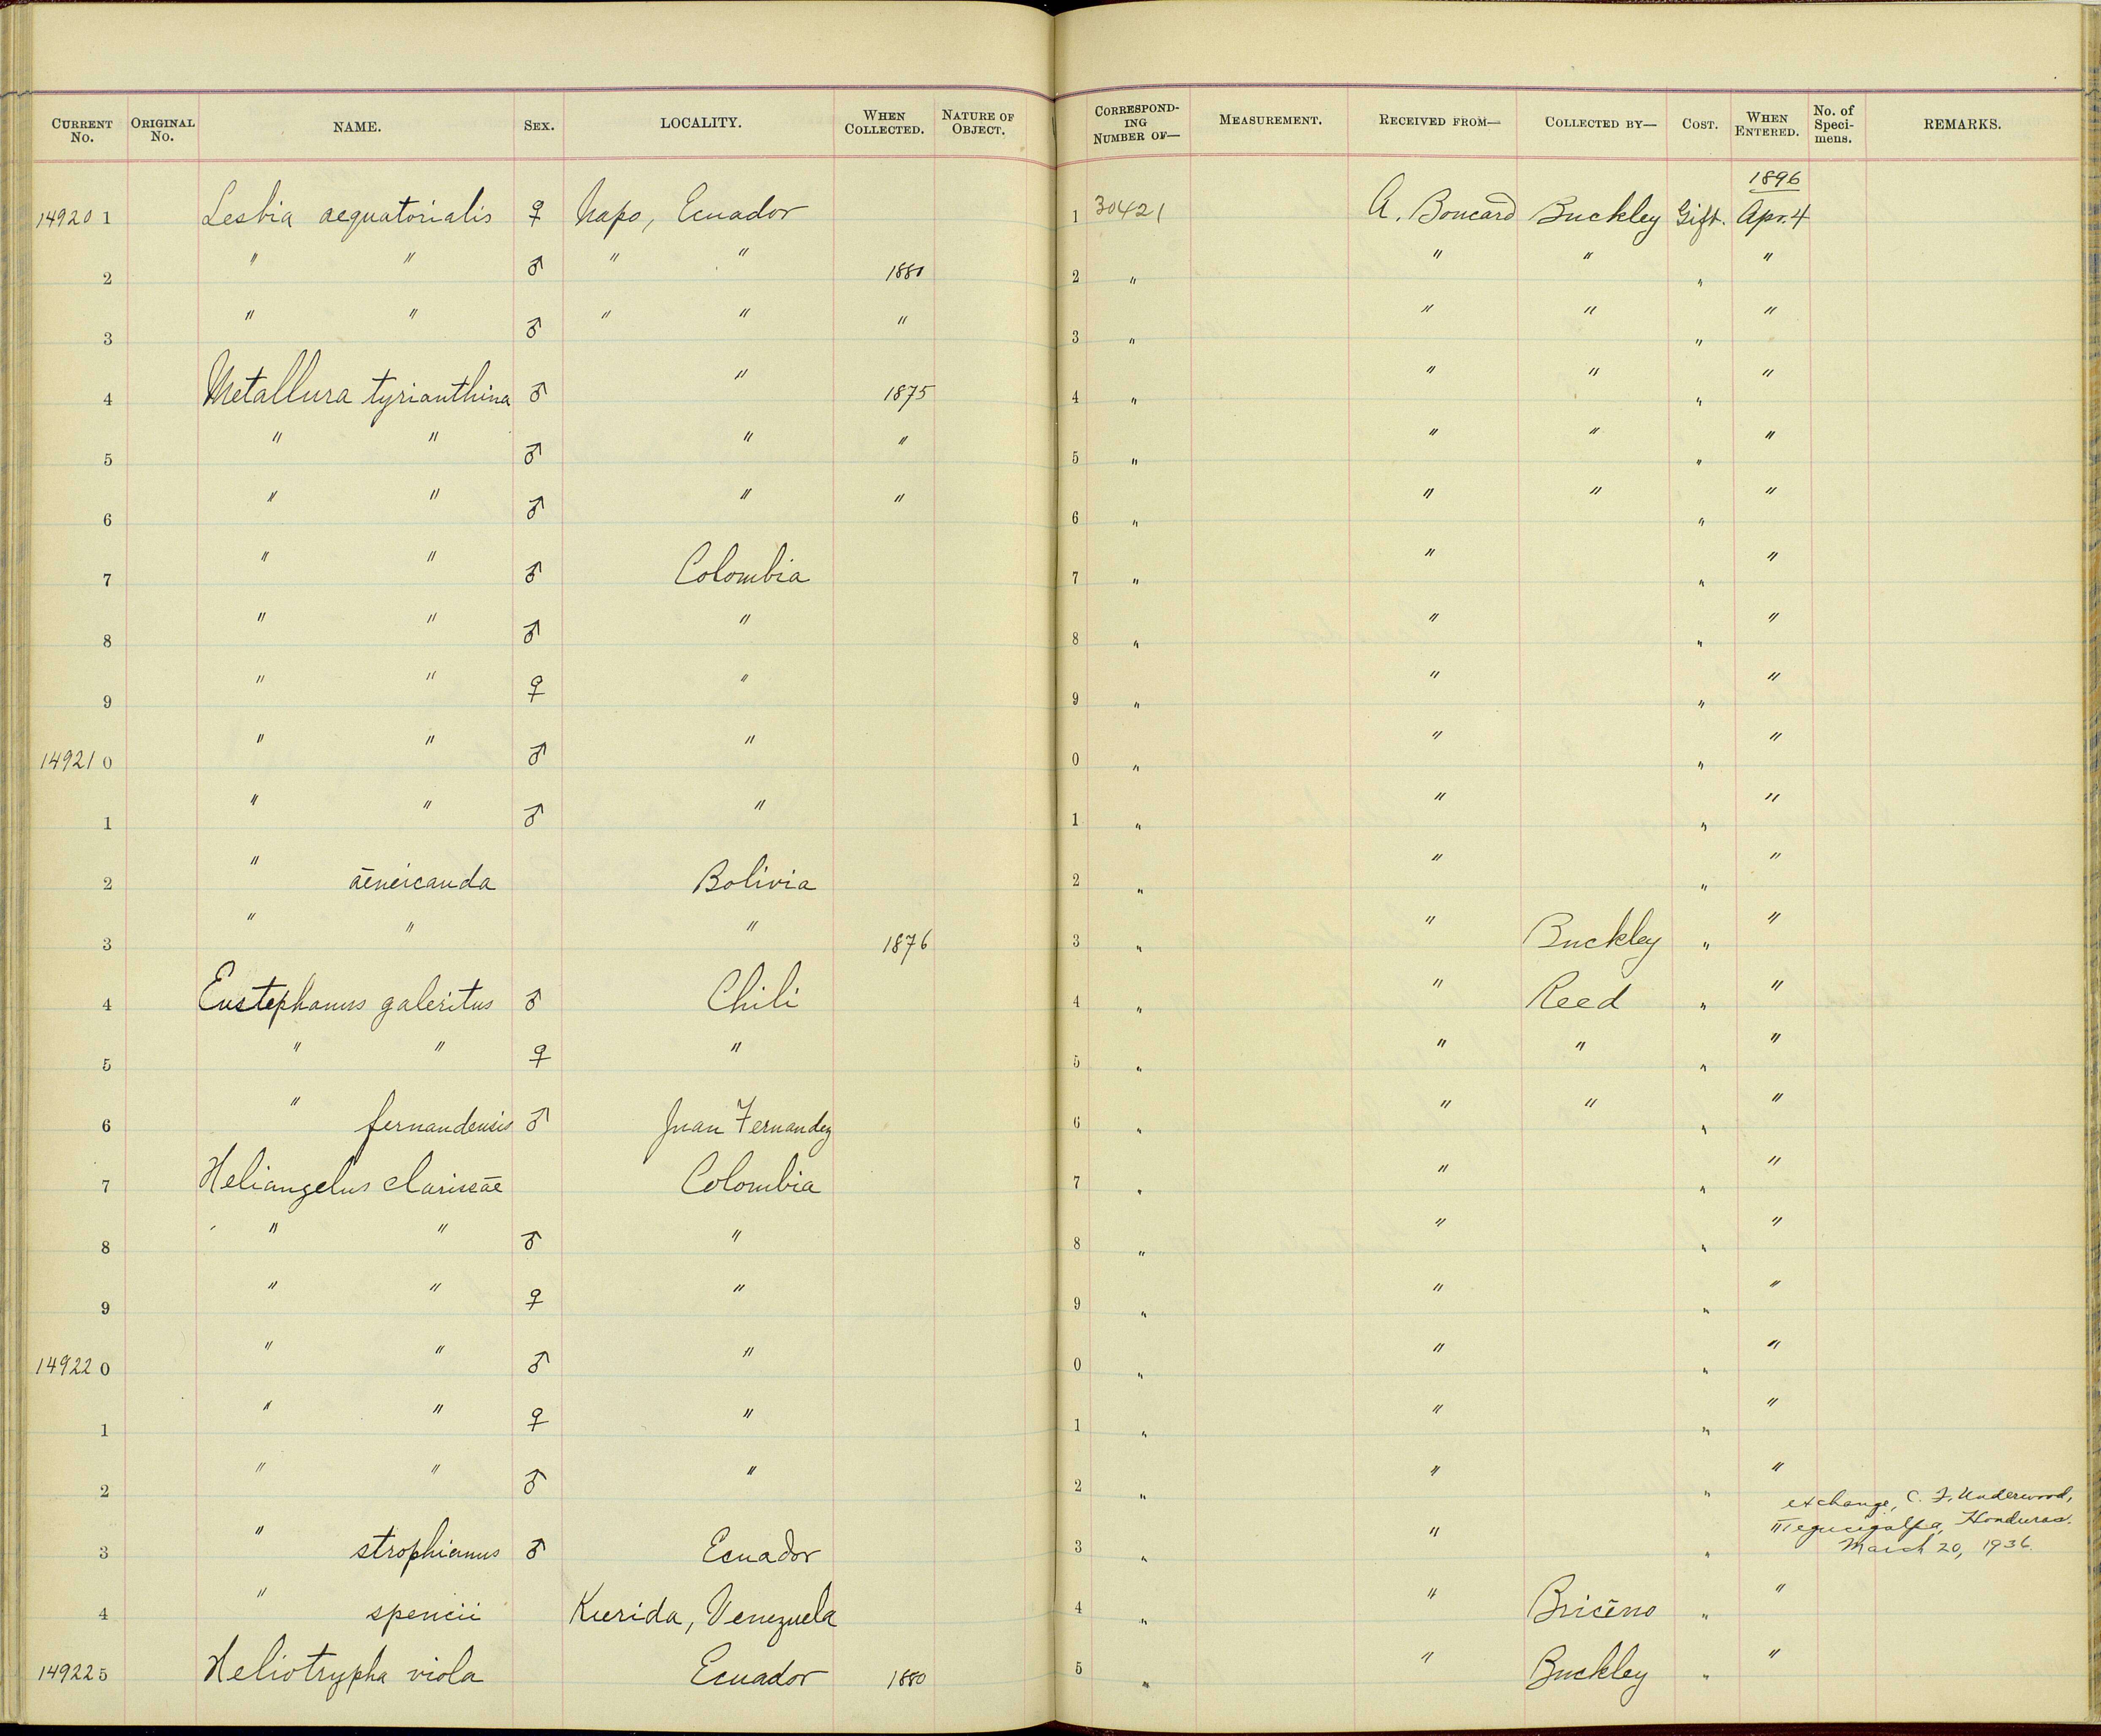 CURRENT No. ORIGINAL No. NAME. SEX. LOCALITY. WHEN COLLECTED. NATURE OF OBJECT. CORRESPOND-ING NUMBER OF— MEASUREMENT. RECEIVED FROM— COLLECTED BY— COST. WHEN ENTERED. No. of Speci-mens. REMARKS.
1896
14920 1 Lesbia aequatorialis ♀ Napo, Ecuador 1 30421 A. Boucard Buckley Gift. Apr. 4
2 " " ♂ " " 1880 2 " " " " "
3 " " ♂ " " " 3 " " " " "
4 Metallura tyrianthina ♂ " 1875 4 " " " " "
5 " " ♂ " " 5 " " " " "
6 " " ♂ " " 6 " " " " "
7 " " ♂ Colombia 7 " " " "
8 " " ♂ " 8 " " " "
9 " " ♀ " 9 " " " "
14921 0 " " ♂ " 0 " " " "
1 " " ♂ " 1 " " " "
2 " aeneicauda Bolivia 2 " " " "
3 " " " 1876 3 " " Buckley " "
4 Eustephanus galeritus ♂ Chili 4 " " Reed " "
5 " " ♀ " 5 " " " " "
6 " fernandensis ♂ Juan Fernandez 6 " " " " "
7 Heliangelus clarissae Colombia 7 " " " "
8 " " ♂ " 8 " " " "
9 " " ♀ " 9 " " " "
14922 0 " " ♂ " 0 " " " "
1 " " ♀ " 1 " " " "
2 " " ♂ " 2 " " " "
exchange, C. F. Underwood,
3 " strophianus ♂ Ecuador 3 " " " " Tegucigalpa, Honduras.
March 20, 1936.
4 " spencii Kerida, Venezuela 4 " " Briceno " "
14922 5 Heliotrypha viola Ecuador 1880 5 " " Buckley " "